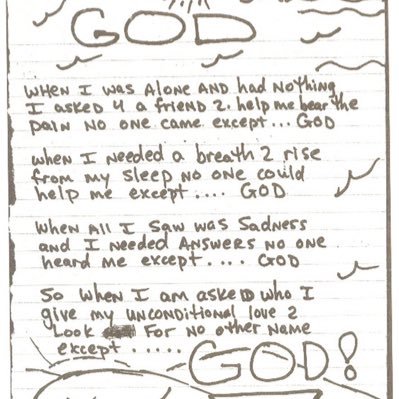 GOD
WHEN I WAS ALONE AND HAD NOTHING
I ASKED 4 a friend 2 help me bear the
pain NO ONE came except... GOD
when I needed a breath 2 rise
from my sleep NO ONE could
help me except.... GOD
WHEN All I SAW WAS SADNESS
and I needed ANSWERS NO ONE
heard me except.... GOD
SO WHEN I am asked who I
give my unconditional love 2
Look FOR NO other NAME
except.....
GOD!